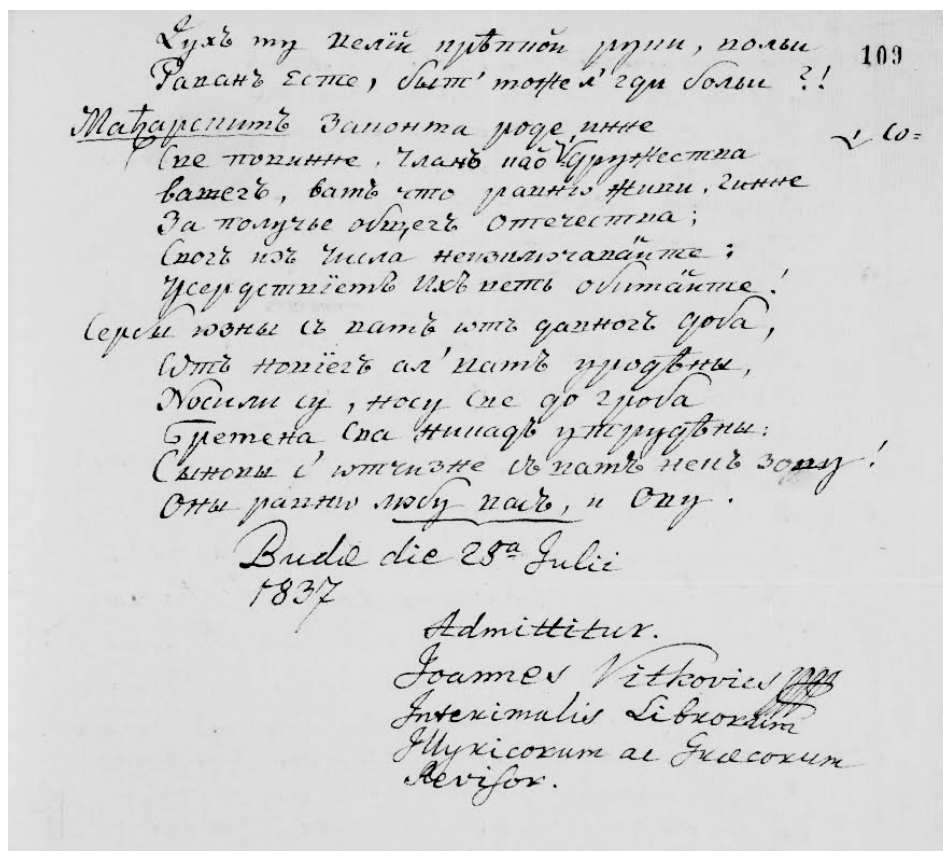 Духъ му келїй крѣпкой руки, кольи
109
Раванъ Есте, быт' може л' гди больи ?!
Мађарскимъ Законта роде, инне
√ со=
Све повинне. Членъ као √ дружества
вашегъ, вамъ что равнѡ живи, чинне
За получье общегъ Отечества;
Свогъ изъ числа неизключавайте:
Усердствїемъ Ихъ петь обитайте!
Сербы юзны съ вамъ ѡтъ давногъ доба,
Ѡтъ коїегъ ал' вамъ уродѣны,
Носили су, носу све до гроба
Бремена сва никадъ утрудѣны:
Сынови с' ѡтчизне съ вамъ некъ зову!
Они равнѡ любу васъ, и Ову.
Budæ die 28ª Julii
1837
Admittitur.
Joannes Vitkovics
Interimalis Librorum
Illyricorum ac Græcorum
Revisor.